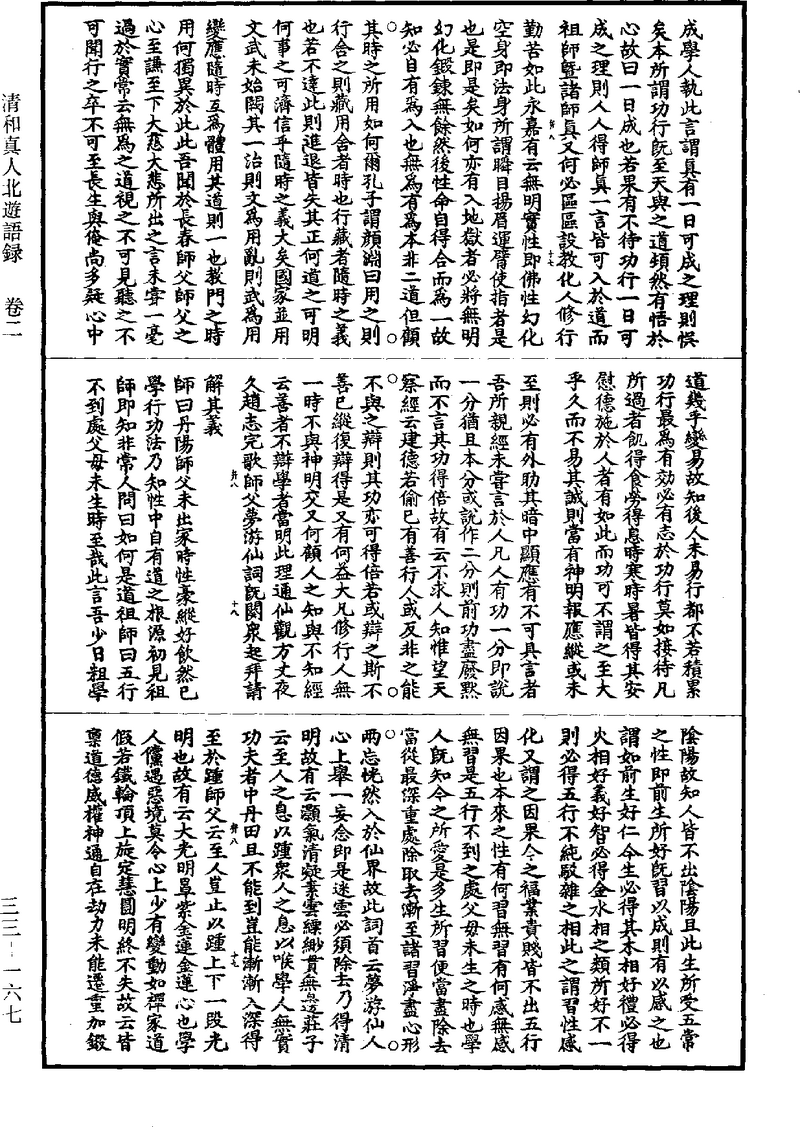 成學人執此言謂真有一日可成之理則悞
矣本所謂功行旣至天與之道頊然有悟於
心故曰一日成也若果有不待功行一日可
成之理則人人得師真一言皆可入於道而
祖師曁諸師真又何必區區設教化人修行
勤苦如此永嘉有云無明實性即佛性幻化
空身即法身所謂瞬目揚眉運臂使指者是
也是即是矣如何亦有入地獄者必將無明
幻化鍛鍊無餘然後性命自得合而爲一故
知必自有爲入也無爲有爲本非二道但顧
其時之所用如何爾孔子謂顏淵曰用之則
行舍之則藏用舍者時也行藏者隨時之義
也若不達此則進退皆失其正何道之可明
何事之可濟信乎隨時之義大矣國家並用
文武未始闕其一治則文爲用亂則武爲用
變應隨時互爲體用其道則一也教門之時
用何獨異於此此吾聞於長春師父師父之
心至謙至下大慈大悲所出之言未嘗一毫
過於實常云無爲之道視之不可見聽之不
可聞行之卒不可至長生與俊尚多疑心中
道幾乎變易故知後人未易行都不若積累
功行最爲有効必有志於功行莫如接待凡
所過者飢得食勞得息時寒時暑皆得其安
慰德施於人者有如此而功可不謂之至大
乎久而不易其誠則當有神明報應縱或未
至則必有外助其暗中顯應有不可具言者
吾所親經未嘗言於人凡人有功一分即說
一分猶且本分或說作二分則前功盡廢黙
而不言其功得倍故有云不求人知惟望天
察經云建德若偷已有善行人或反非之能
不與之辯則其功亦可得倍若或辯之斯不
善已縱復辯得是又有何益大凡修行人無
一時不與神明交又何顧人之知與不知經
云善者不辯學者當明此理通仙觀方丈夜
久趙志完歌師父夢游仙詞旣闋衆起拜請
解其義
師曰丹陽師父未出家時性豪縱好飲然已
學行功法乃知性中自有道之根源初見祖
師即知非常人問曰如何是道祖師曰五行
不到處父母未生時至哉此言吾少日粗學
陰陽故知人皆不出陰陽且此生所受五常
之性即前生所好旣習以成則有以感之也
謂如前生好仁今生必得其木相好禮必得
火相好義好智必得金水相之類所好不一
則必得五行不純駁雜之相此之謂習性感
化又謂之因果今之福業貴賤皆不出五行
因果也本來之性有何習無習有何感無感
無習是五行不到之處父母未生之時也學
人旣知今之所愛是多生所習便當盡除去
當從最深重處除取去漸至諸習淨盡心形
兩忘恍然入於仙界故此詞首云夢游仙人
心上舉一妄念即是迷雲必須除去乃得清
明故有云灝氣清凝素雲縹緲貫無邊莊子
云至人之息以踵衆人之息以喉學人無實
功夫者中丹田且不能到豈能漸漸入深得
至於踵師父云至人豈止以踵上下一段光
明也故有云大光明罩紫金蓮金蓮心也學
人儻遇惡境莫令心上少有變動如禪家道
假若鐵輪頂上旋定慧圓明終不失故云皆
稟道德威權神通自在劫力未能遷重加鍛
清和真人北遊語録 卷二
三三－一六七